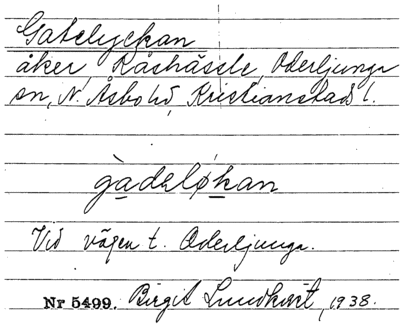 Gatelyckan
åker, Råshässle, Oderljunga
sn, N. Åsbo hd, Kristianstads l.
gàdeløkan
Vid vägen t. Oderljunga.
Nr 5499. Birgit Lundkvist, 1938.